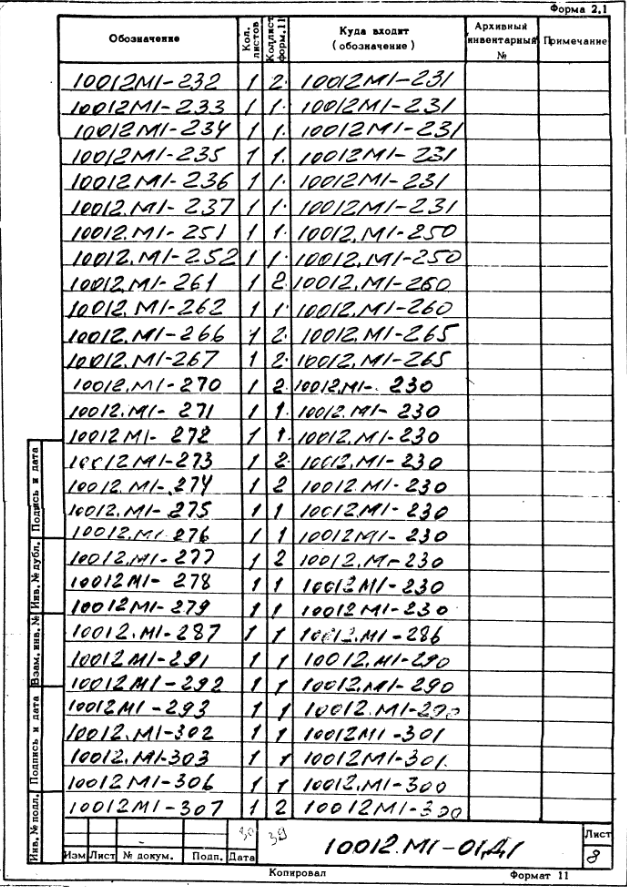 Форма 2.1
Обозначение Кол. листов Кол.лист форм.11 Куда входит (обозначение) Архивный инвентарный № Примечание
10012М1-232 1 2. 10012М1-231
10012М1-233 1 1. 10012М1-231
10012М1-234 1 1. 10012М1-231
10012М1-235 1 1. 10012М1-231
10012М1-236 1 1. 10012М1-231
10012.М1-237 1 1. 10012М1-231
10012.М1-251 1 1. 10012.М1-250
10012.М1-252 1 1. 10012.М1-250
10012.М1-261 1 2 10012.М1-260
10012.М1-262 1 1. 10012.М1-260
10012.М1-266 1 2. 10012.М1-265
10012.М1-267 1 2. 10012.М1-265
10012.М1-270 1 2. 10012.М1-230
10012.М1-271 1 1. 10012.М1-230
10012М1-272 1 1. 10012.М1-230
10012М1-273 1 2. 10012.М1-230
10012.М1-274 1 2 10012.М1-230
10012.М1-275 1 1 10012.М1-230
10012.М1-276 1 1 10012М1-230
10012.М1-277 1 2 10012.М1-230
10012М1-278 1 1 10012М1-230
10012М1-279 1 1 10012М1-230
10012.М1-287 1 1 10012.М1-286
10012М1-291 1 1 10012.М1-290
10012М1-292 1 1 10012.М1-290
10012М1-293 1 1 10012.М1-290
10012.М1-302 1 1 10012М1-301
10012.М1-303 1 1 10012М1-301.
10012М1-306 1 1 10012.М1-300
10012М1-307 1 2 10012М1-300
Инв. № подл. Подпись и дата Взам. инв. № Инв. № дубл. Подпись и дата
39
10012.М1-01Д1
Лист
8
Изм Лист № докум. Подп. Дата
Копировал Формат 11